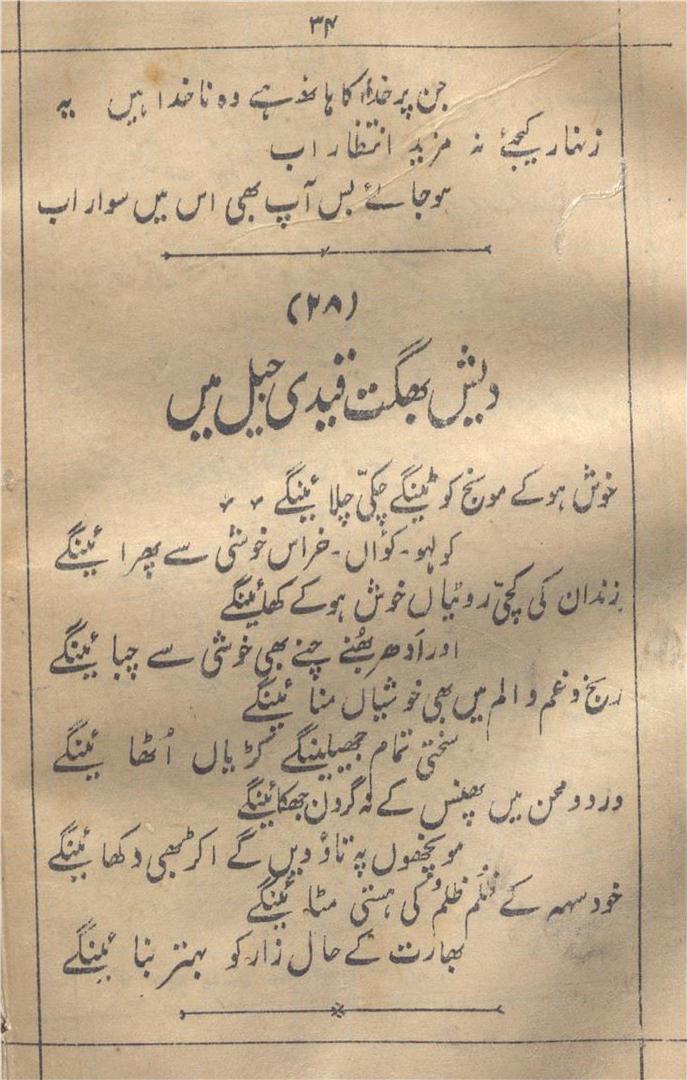 ۳۴
جن پر خدا کا ہاتھ ہے وہ ناخدا ہیں یہ
زنہار کیجئے نہ مزید انتظار اب
ہوجائے بس آپ بھی اس میں سوار اب
(۲۸)
دیش بھگت قیدی جیل میں
خوش ہوکے مونج کوٹینگے چکّی چلائینگے
کولہو۔ کوُاں۔ خراس خوشی سے پھرائینگے
زندان کی کچّی روٹیاں خوش ہوکے کھائینگے
اور اَدھ بھُنے چنے بھی خوشی سے چبائینگے
رنج و غم و الم میں بھی خوشیاں منائینگے
سختی تمام جھیلینگے کڑیاں اُٹھائینگے
درد و محن میں پھنس کے نہ گردن جھکائینگے
مونچھوں پہ تاؤ دیں گے اکڑ بھی دکھائینگے
خود سہہ کے ظُلم ظلم کی ہستی مٹائینگے
بھارت کے حال زار کو بہتر بنائینگے